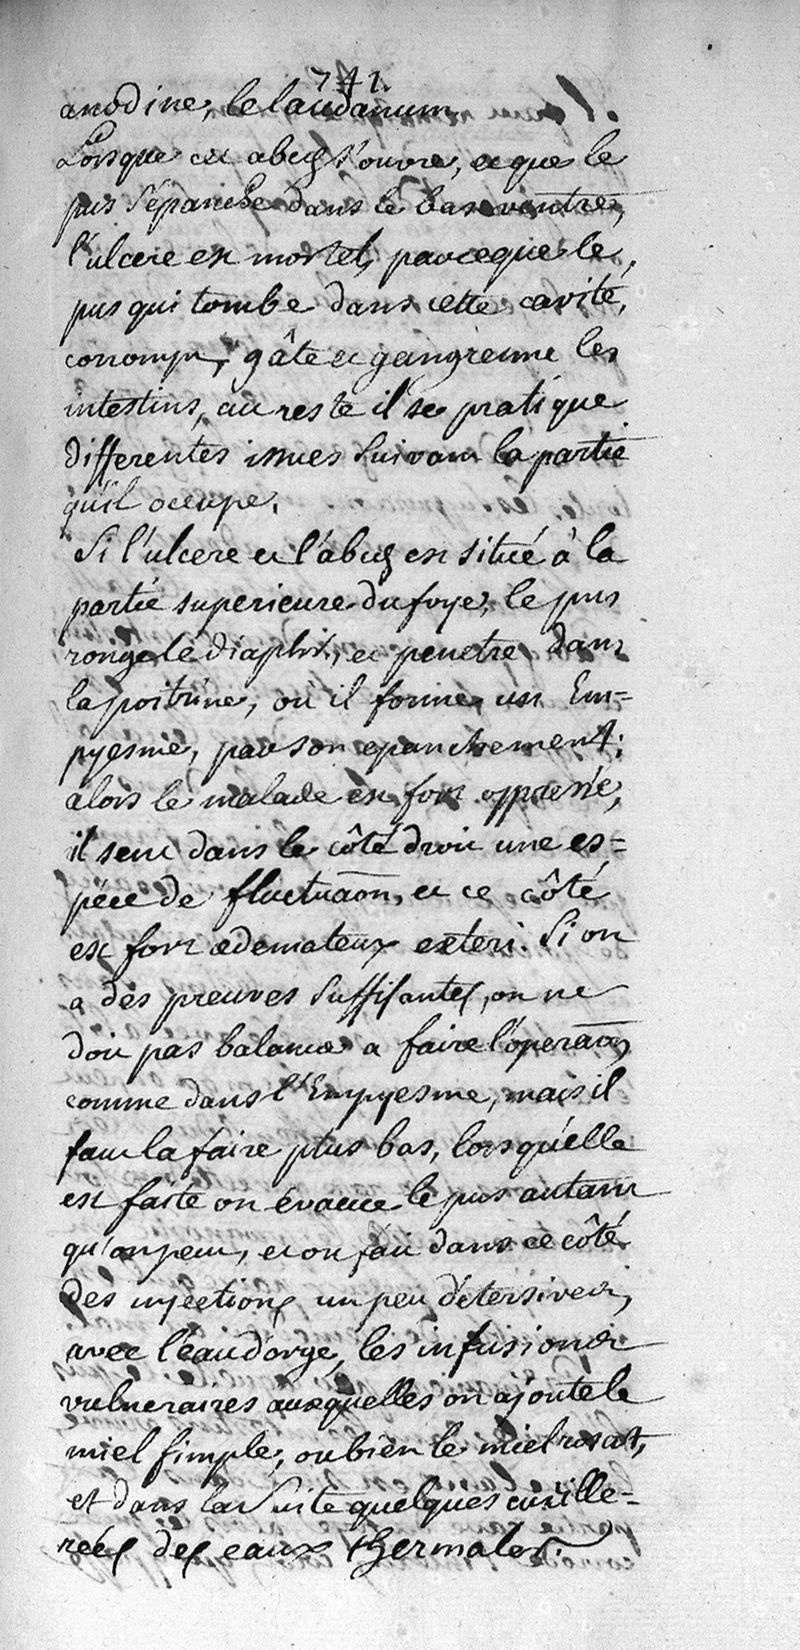 741.
anodine, le laudanum
Lorsque cet abcès s'ouvre, et que le
pus s'épanche dans le bas ventre,
l'ulcere est mortel, parceque le
pus qui tombe dans cette cavité,
corrompt, gâte et gangrenne les
intestins, au reste il se pratique
differentes issues suivant la partie
qu'il occupe.
Si l'ulcere et l'abcès est situé à la
partie superieure du foye, le pus
ronge le diaphr., et penetre dans
la poitrine, où il forme un Em=
pyesme, par son epanchement;
alors le malade est fort oppressé,
il sent dans le côté droit une es=
péce de fluctuãon, et ce côté
est fort œdemateux exteri. Si on
a des preuves suffisantes, on ne
doit pas balancer a faire l'operaõn
comme dans l'Empyesme, mais il
faut la faire plus bas, lorsqu'elle
est faite on évacue le pus autant
qu'on peut, et on fait dans ce côté
des injections un peu détersives,
avec l'eau d'orge, les infusions
vulneraires auxquelles on ajoute le
miel simple, ou bien le miel rosat,
et dans la suite quelques cuille=
rées des eaux thermales.